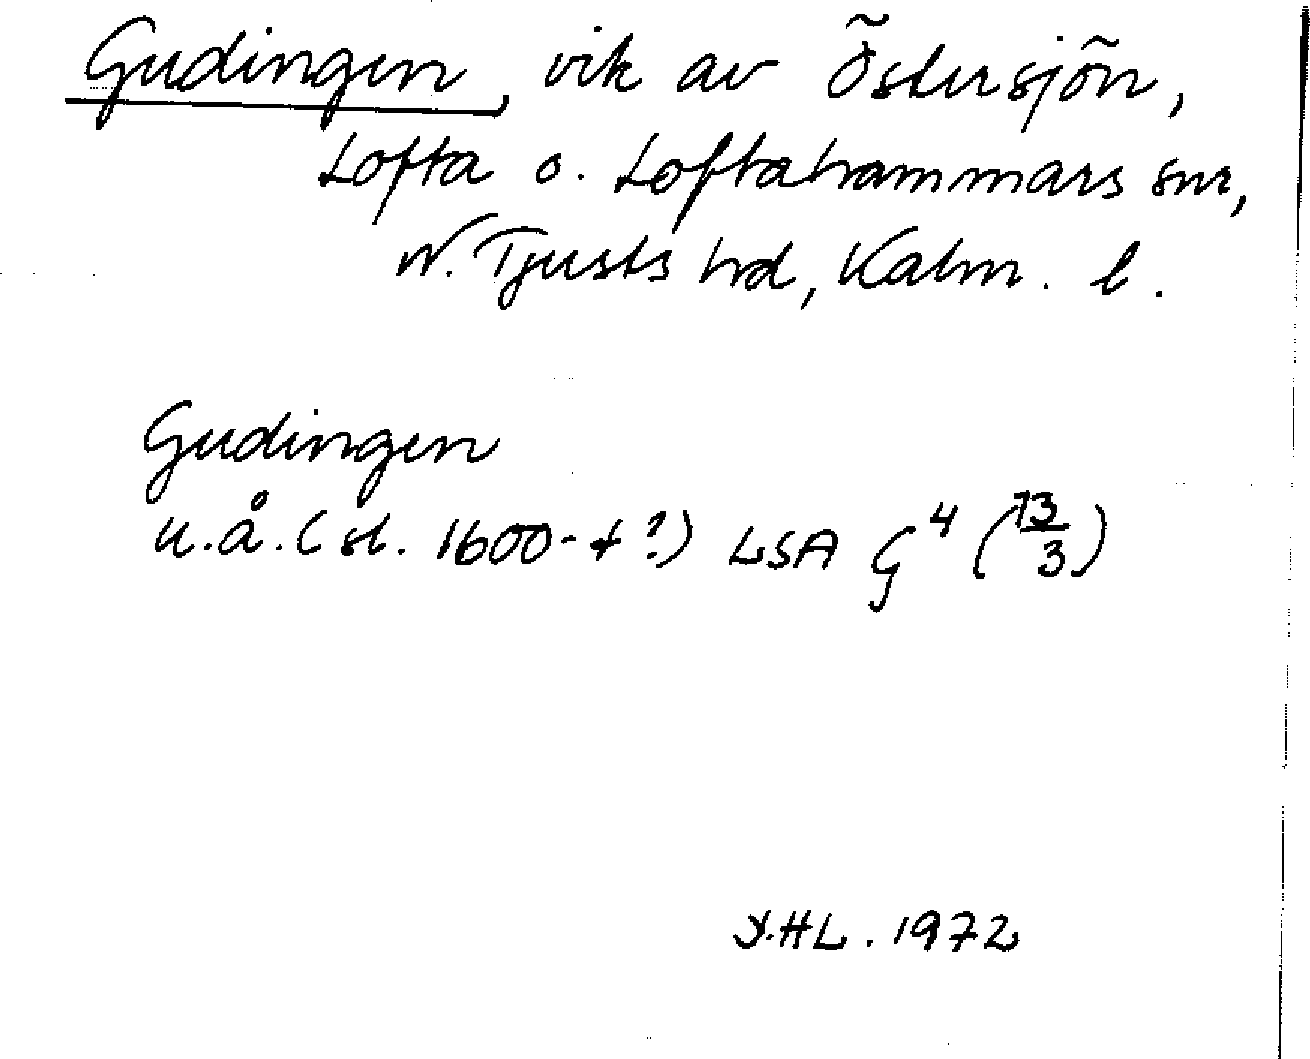 Gudingen, vik av Östersjön,
Lofta o. Loftahammars snr,
N. Tjusts hrd, Kalm. l.
Gudingen
u.å. (sl. 1600-t?) LSA G⁴ (13/3)
Y.HL. 1972